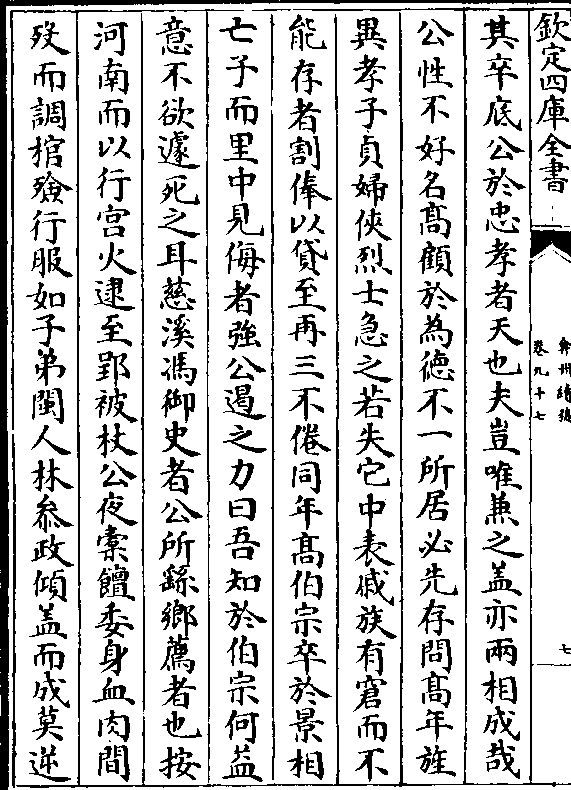 欽定四庫全書
弇州續稿
卷九十七
七
其卒底公於忠孝者天也夫豈唯兼之盖亦兩相成哉
公性不好名高顧於為德不一所居必先存問高年旌
異孝子貞婦俠烈士急之若失它中表戚族有窘而不
能存者割俸以貸至再三不倦同年高伯宗卒於景相
亡子而里中見侮者強公遏之力曰吾知於伯宗何益
意不欲遽死之耳慈溪馮御史者公所繇鄉薦者也按
河南而以行宫火逮至郢被杖公夜橐饘委身血肉間
歿而調棺殮行服如子弟閩人林叅政傾盖而成莫逆